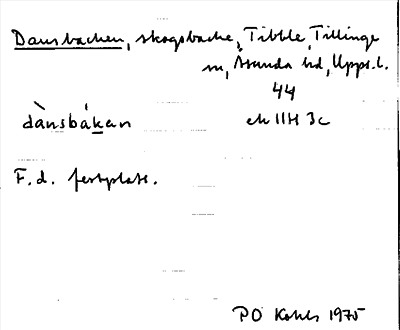 Dansbacken, skogsbacke, Tibble, Tillinge
sn, Åsunda hd, Upps. l.
44
dànsbákan ek 11H 3c
F.d. festplats.
PO Kohls 1975